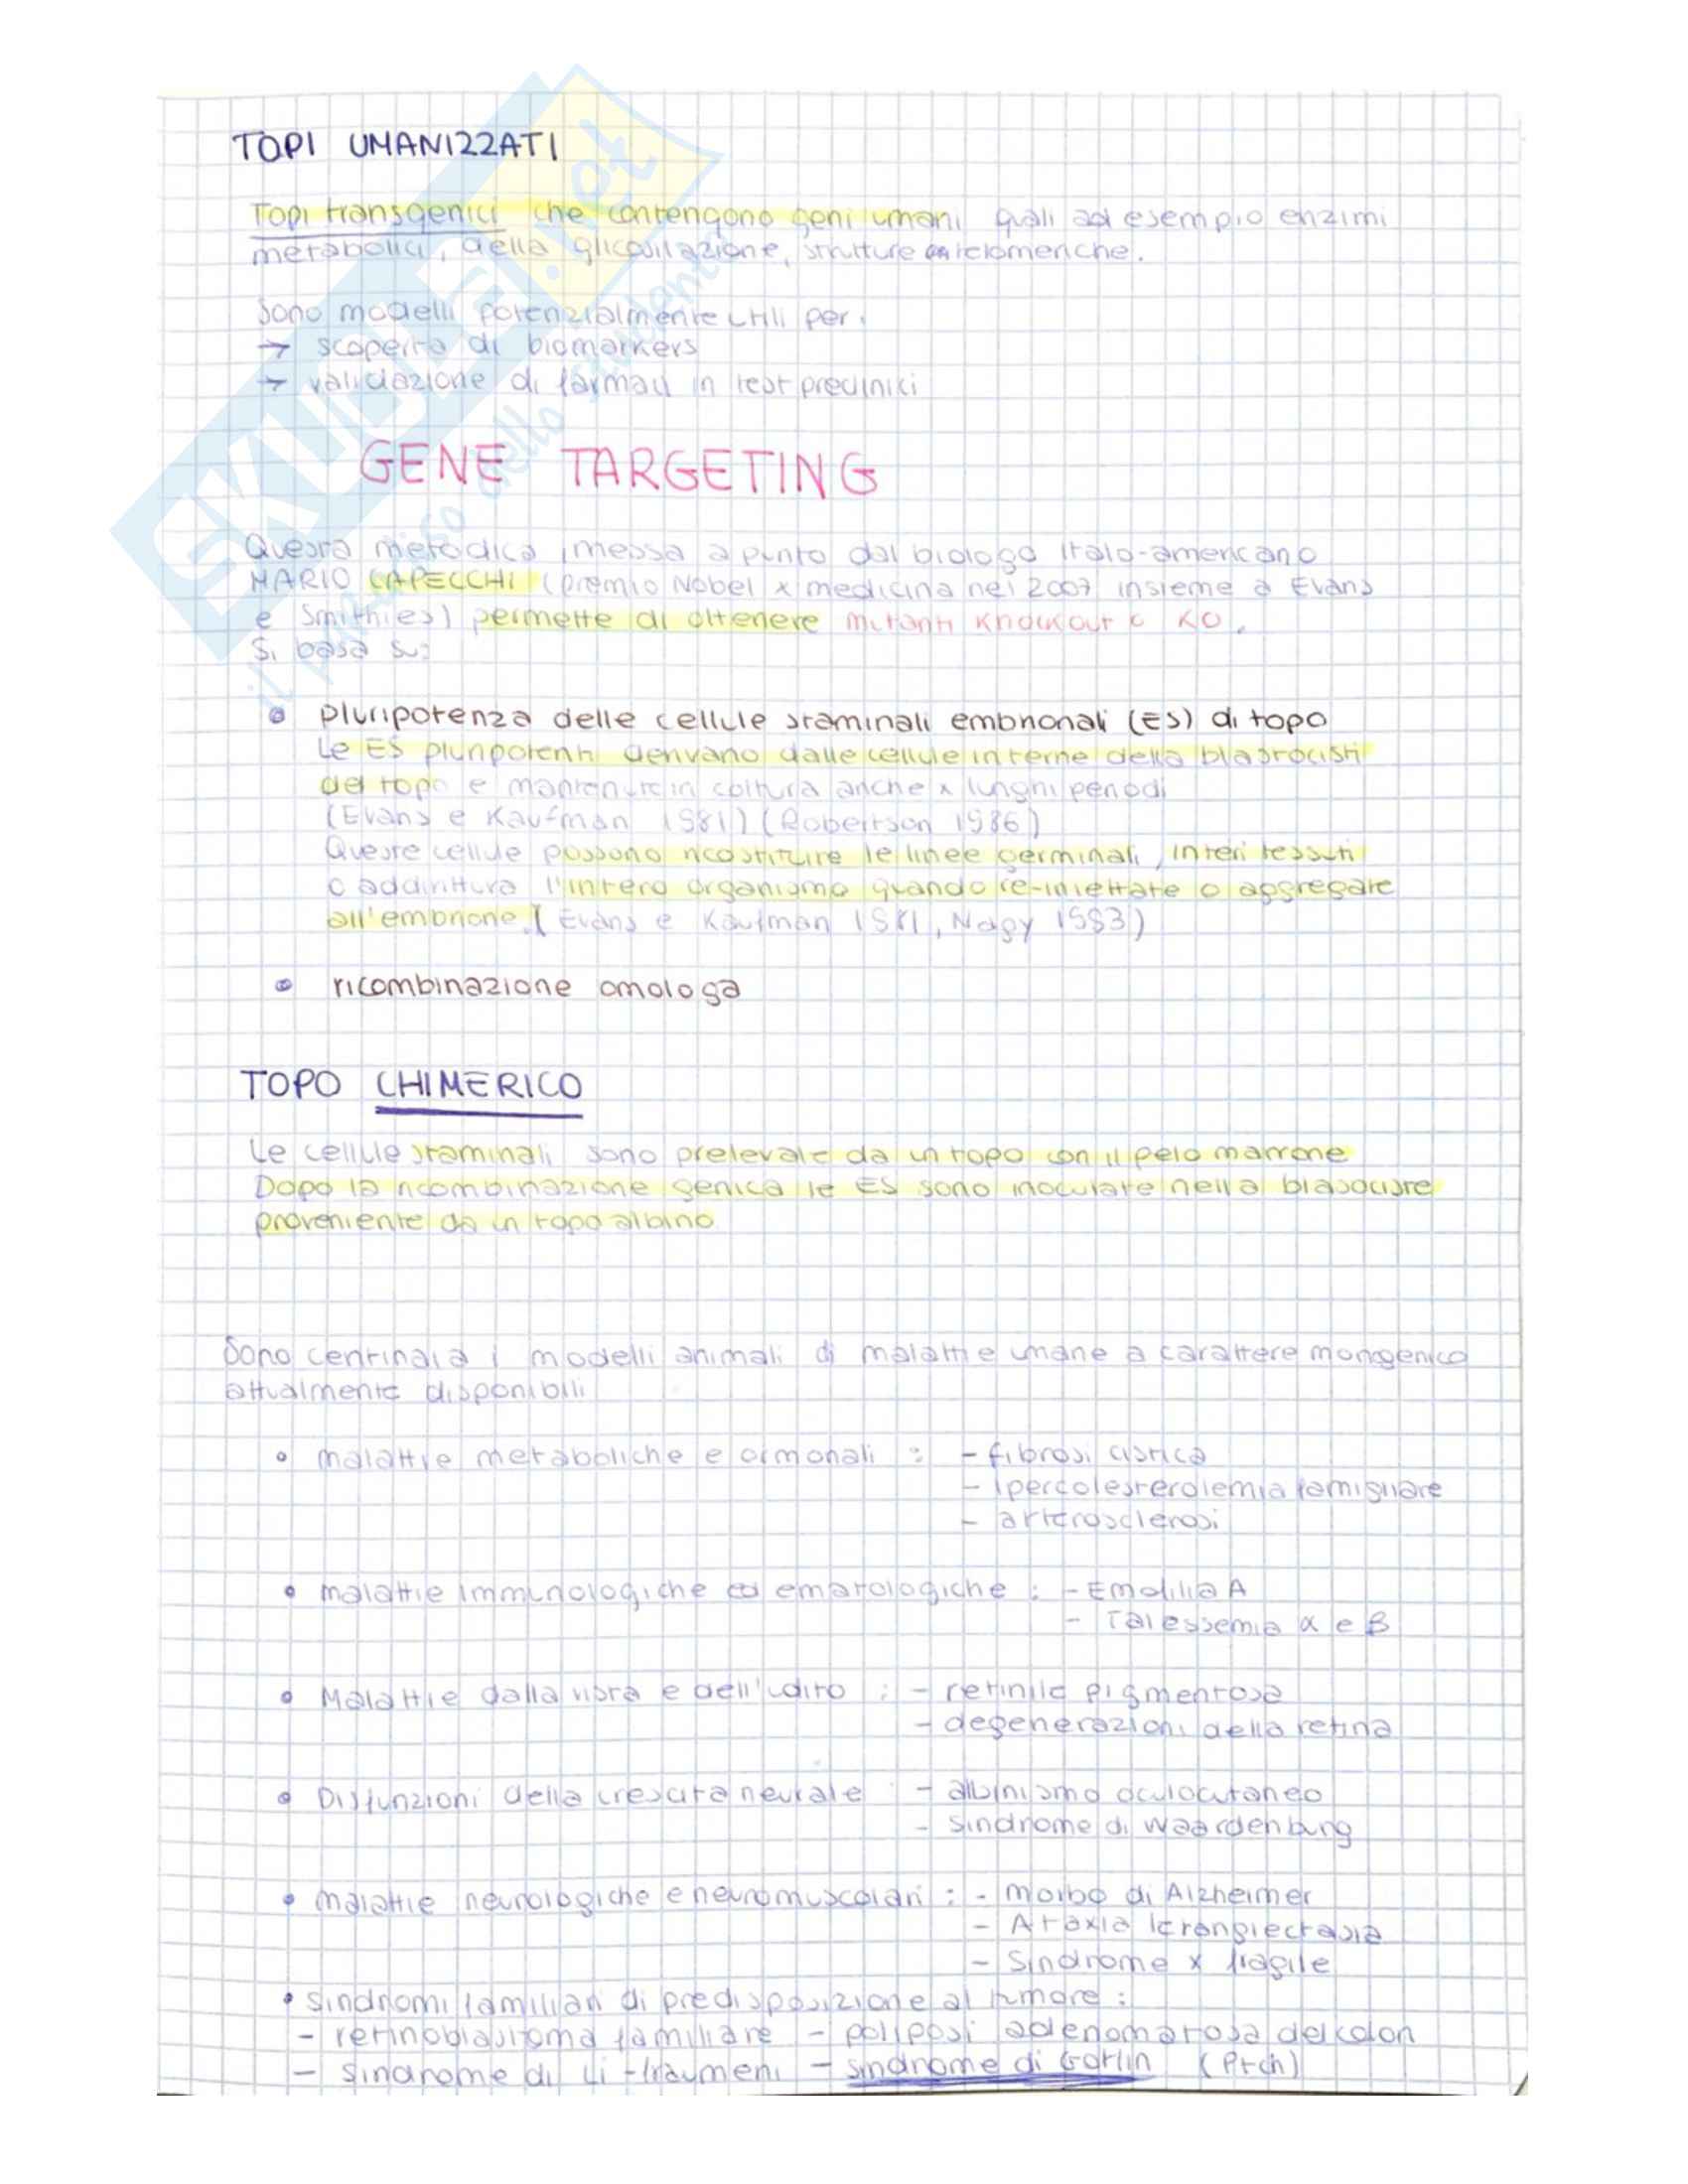 TOPI UMANIZZATI
Topi transgenici che contengono geni umani quali ad esempio enzimi
metabolici, della glicosilazione, strutture telomeriche.
Sono modelli potenzialmente utili per:
→ scoperta di biomarkers
→ validazione di farmaci in test preclinici
GENE TARGETING
Questa metodica, messa a punto dal biologo italo-americano
MARIO CAPECCHI (premio Nobel x medicina nel 2007 insieme a Evans
e Smithies) permette di ottenere mutanti knockout o KO.
Si basa su:
• pluripotenza delle cellule staminali embrionali (ES) di topo
Le ES pluripotenti derivano dalle cellule interne della blastocisti
del topo e mantenute in coltura anche x lunghi periodi
(Evans e Kaufman 1981) (Robertson 1986)
Queste cellule possono ricostituire le linee germinali, interi tessuti
o addirittura l'intero organismo quando re-iniettate o aggregate
all'embrione. (Evans e Kaufman 1981, Nagy 1993)
• ricombinazione omologa
TOPO CHIMERICO
Le cellule staminali sono prelevate da un topo con il pelo marrone
Dopo la ricombinazione genica le ES sono inoculate nella blastociste
proveniente da un topo albino
Sono centinaia i modelli animali di malattie umane a carattere monogenico
attualmente disponibili
• malattie metaboliche e ormonali : - fibrosi cistica
- Ipercolesterolemia famigliare
- arterosclerosi
• malattie immunologiche ed ematologiche : - Emofilia A
- Talessemia α e β
• Malattie della vista e dell'udito : - retinite pigmentosa
- degenerazioni della retina
• Disfunzioni della crescita neurale : - albinismo oculocutaneo
- sindrome di Waardenburg
• malattie neurologiche e neuromuscolari : - morbo di Alzheimer
- Ataxia terangiectasia
- Sindrome x fragile
• sindromi familiari di predisposizione al tumore :
- retinoblastoma familiare - poliposi adenomatosa del colon
- sindrome di Li-fraumeni - sindrome di Gorlin (Ptch)
SKUOLA.net
il paradiso dello studente